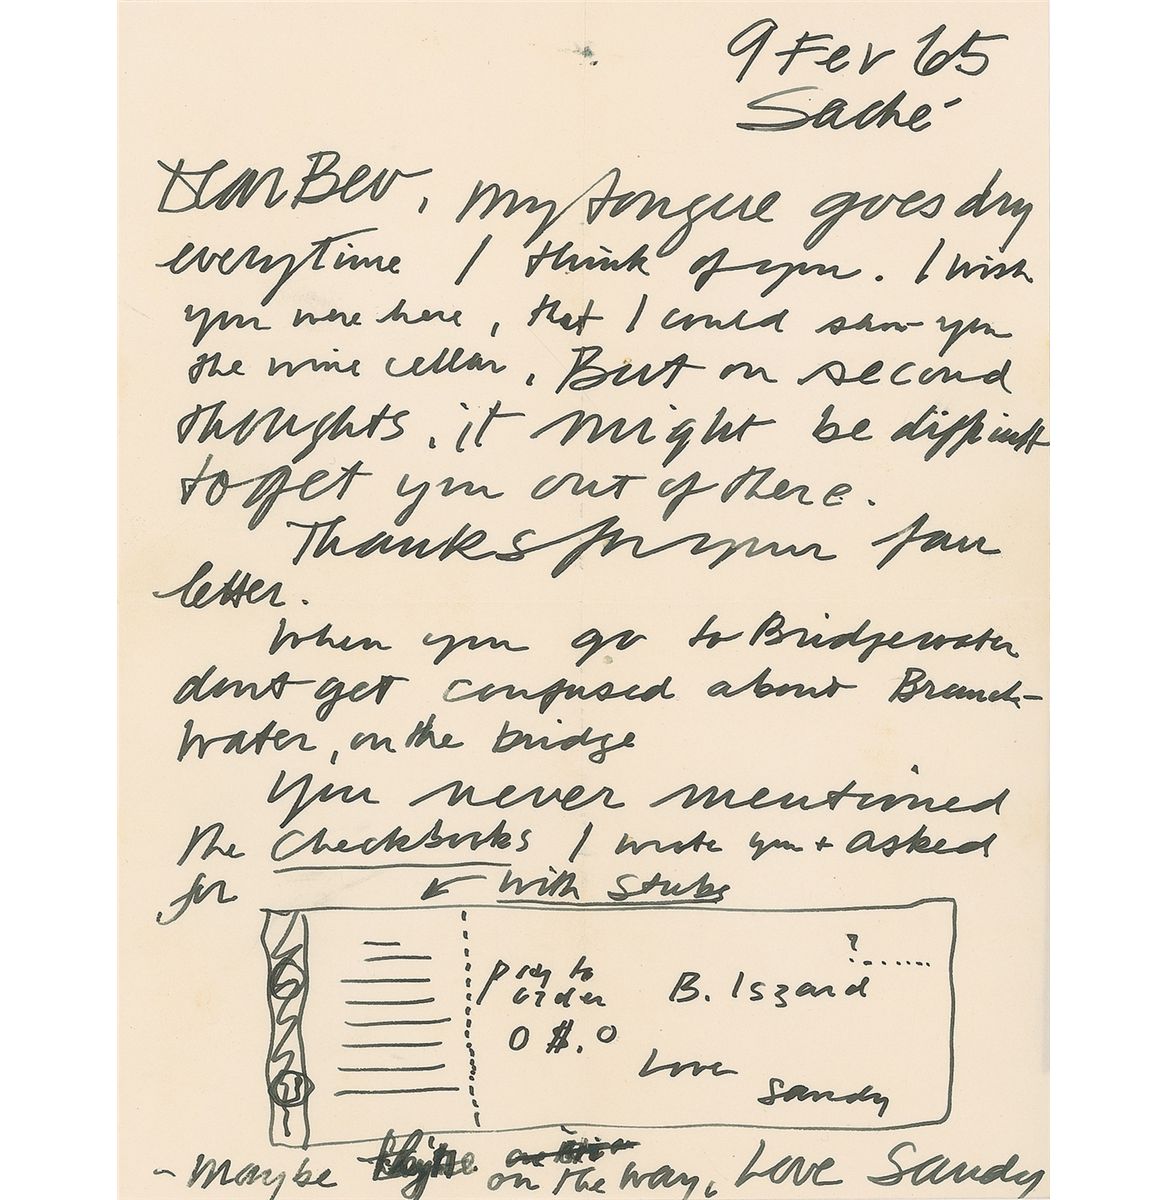 9 Fev 65
Saché
Dear Bev, my tongue goes dry
everytime I think of you. I wish
you were here, that I could show you
the wine cellar. But on second
thoughts, it might be difficult
to get you out of there.
Thanks for your fair
letter.
When you go to Bridgewater
dont get confused about Branch-
Water, on the bridge
You never mentioned
the checkbooks I wrote you + asked
for
with stubs
?
pay to
order
B. Iszard
0 $.0
Love
Sandy
- maybe
on the way, Love Sandy